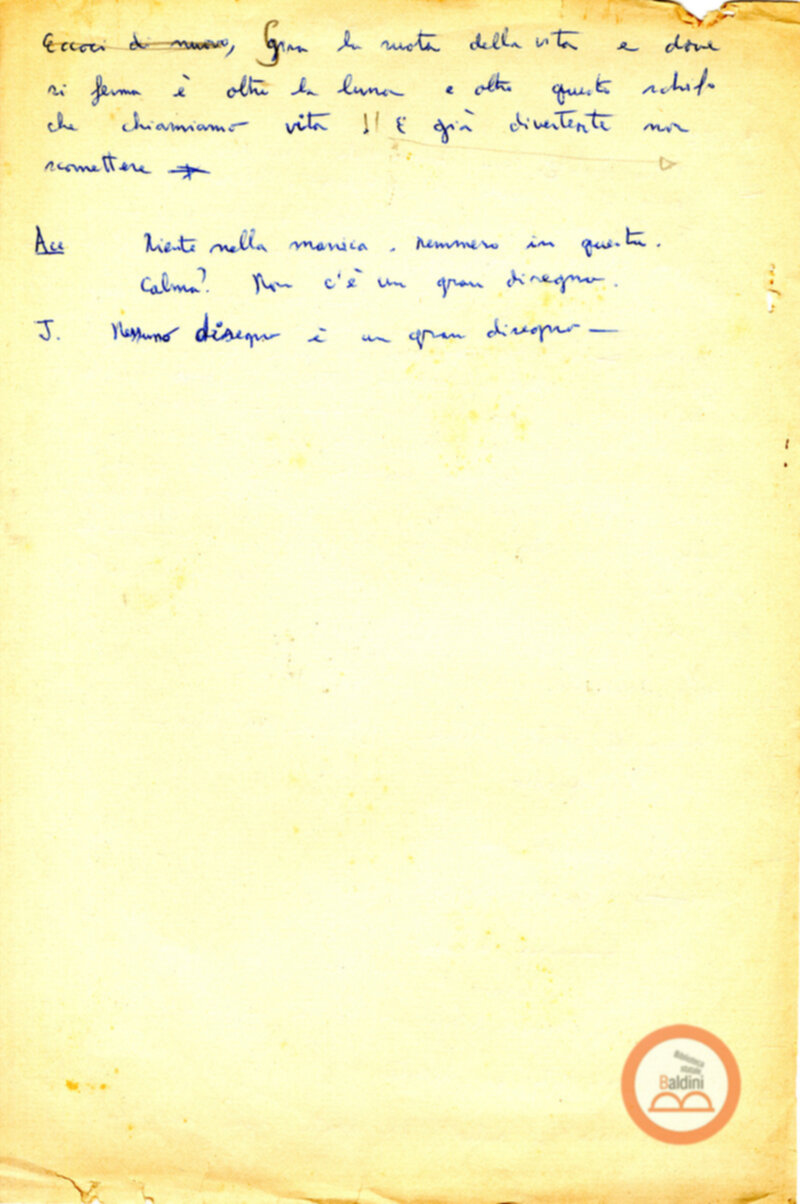 Eccoci di nuovo, Gira la ruota della vita e dove
si ferma è oltre la luna e oltre questo schifo
che chiamiamo vita !! E già divertente non
scomettere
Acc Niente nella manica. Nemmeno in questa.
Calma? Non c'è un gran disegno.
J. Nessuno disegno è un gran disegno —
Biblioteca
statale
Baldini